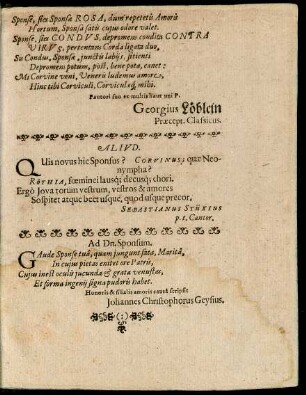 Sponse, sies Sponsa ROSA, dum repetetis Amoris
Hortum, Sponsa satis cujus odore valet.
Sponse, sies CONDVS, depromens condita CONTRA
VIRVs, pertentans Corda ligata duo,
Sis Condus, Sponsæ, junctis labijs, sitienti
Depromens potum, post, bene pota, canet:
Mi Corvine veni, Veneris ludemus amore,
Hinc tibi Corviculi, Corviculæq; mihi.
Georgius Löblein
Præcept. Classicus.
ALIVD.
QUis novus hic Sponsus? CORVINUS; quæ Neo-
nympha?
RÖTHIA, fœminei lausq; decusq; chori.
Ergò Jova torum vestrum, vestros & amores
Sospitet atque beet usque, quod usque precor.
SEBASTIANUS STÜXIUS
p. t. Cantor.
Ad Dn. Sponsum.
GAude Sponse tuâ, quam jungunt fata, Maritâ,
In cujus pietas enitet ore Patris,
Cujus inest oculis jucunda & grata venustas,
Et forma ingenij signa pudoris habet.
Honoris & filialis amoris causâ scripsit
Johannes Christophorus Geysius.
(:)